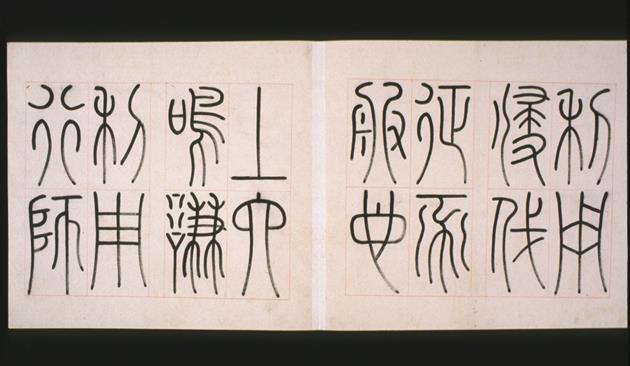 利用
侵伐
征不
服也
上六
鳴謙
利用
行師